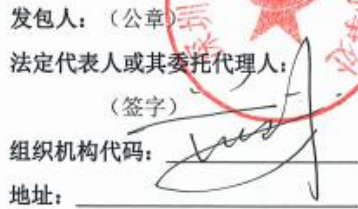 发包人：（公章）
法定代表人或其委托代理人：
（签字）
组织机构代码：
地址：
深圳